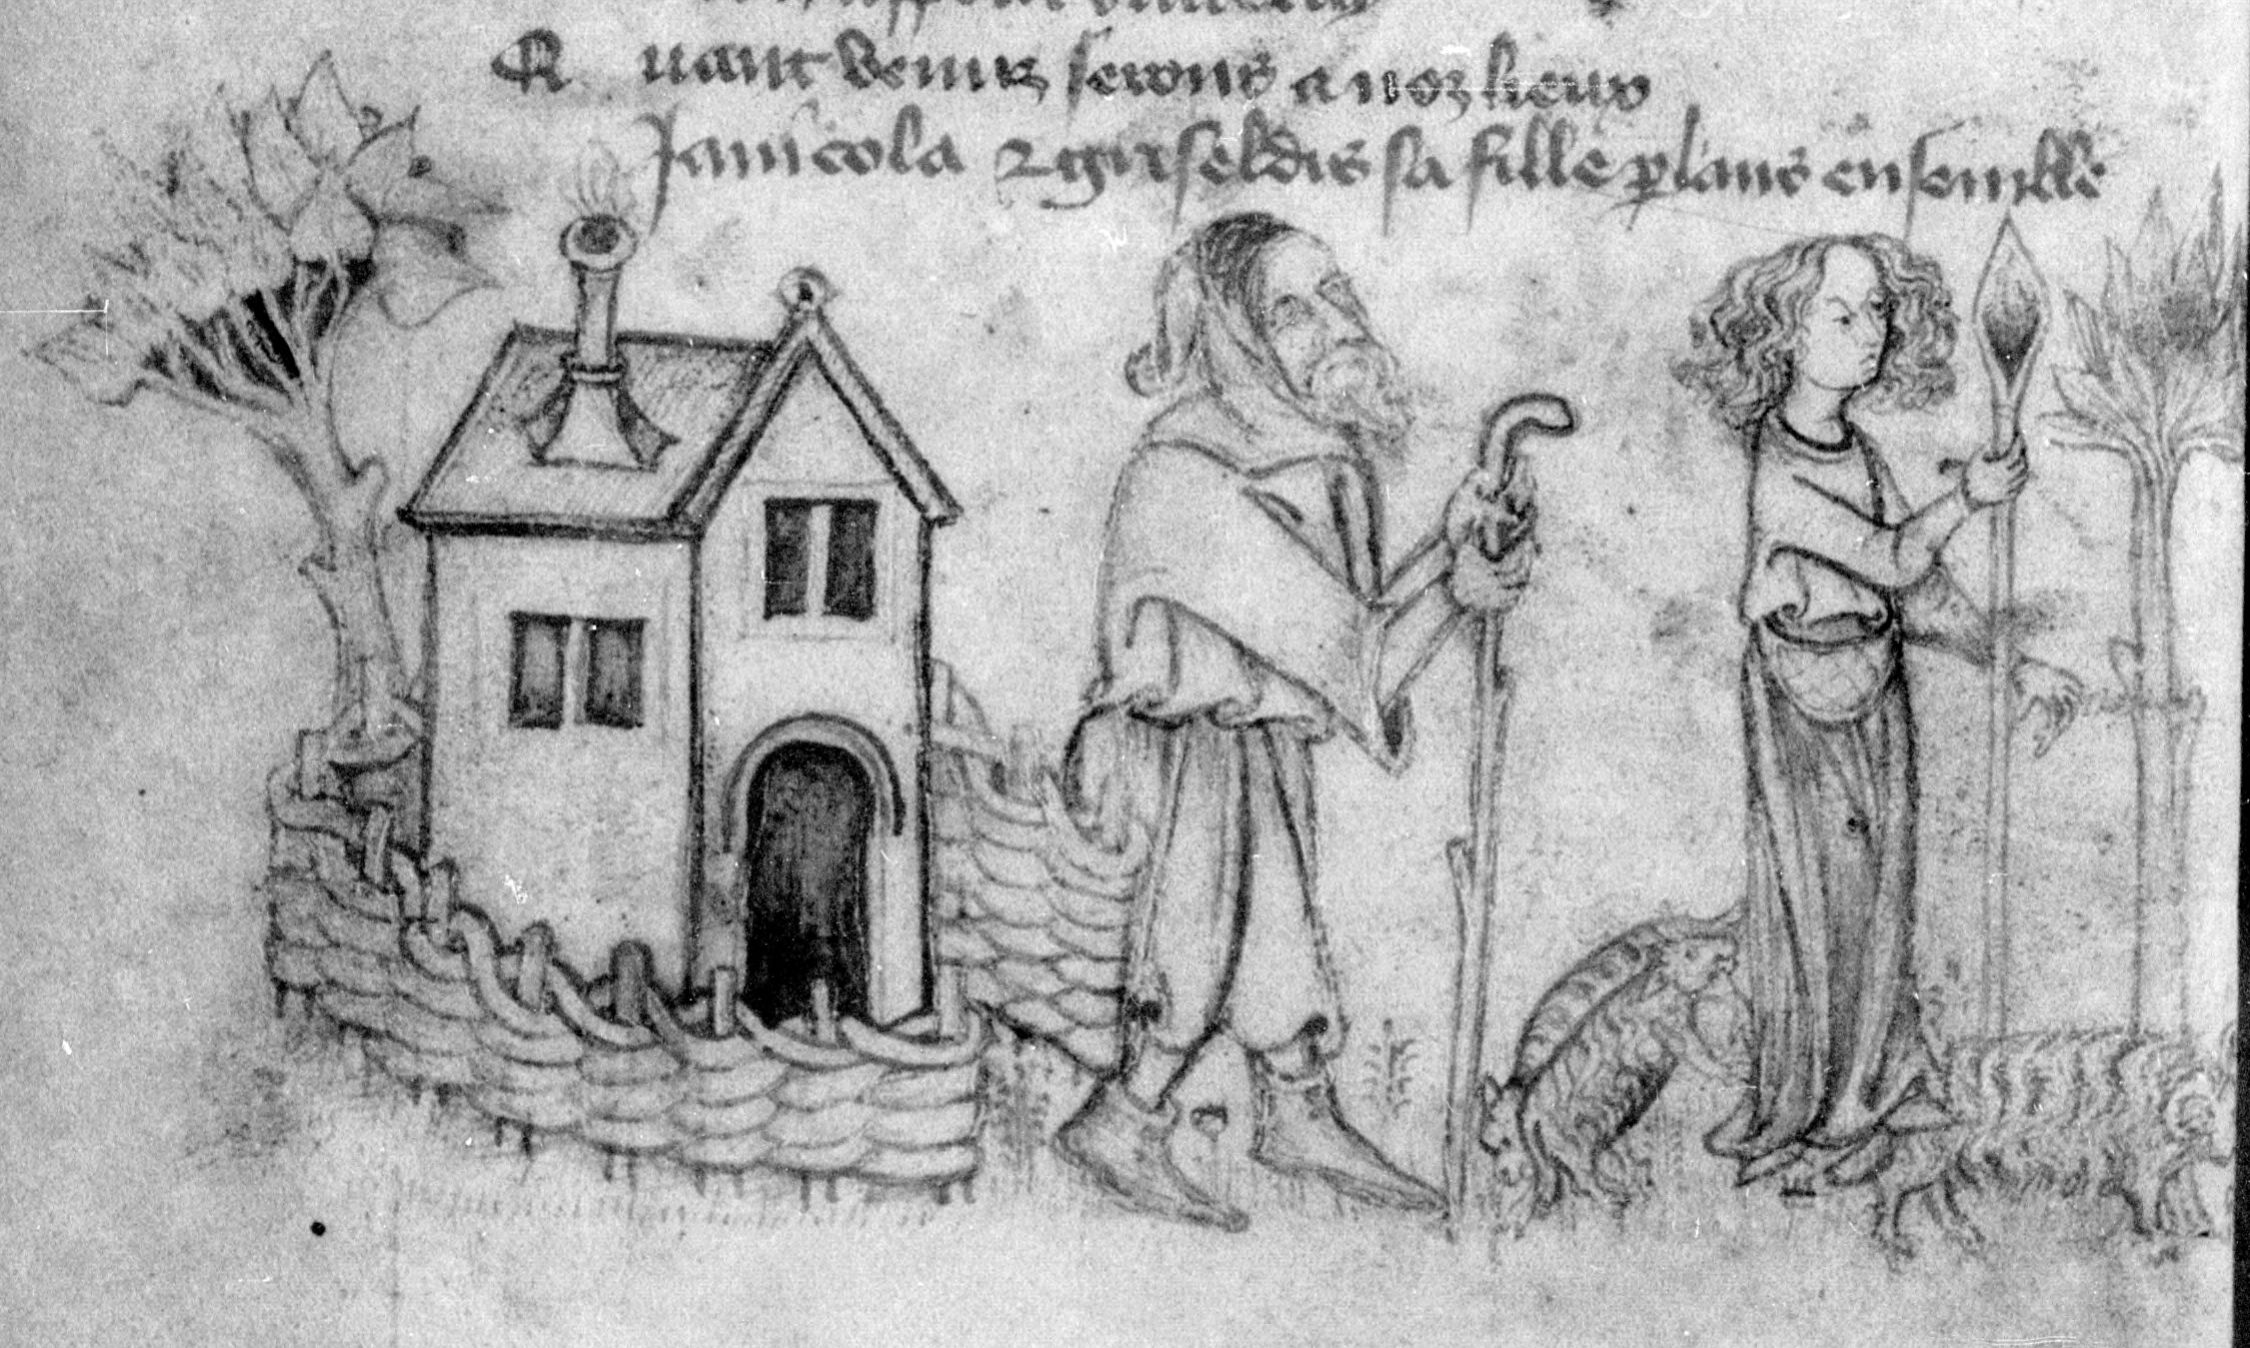 Quant venus serons a noz lieux
Janicola & griseldis sa fille plans ensemble